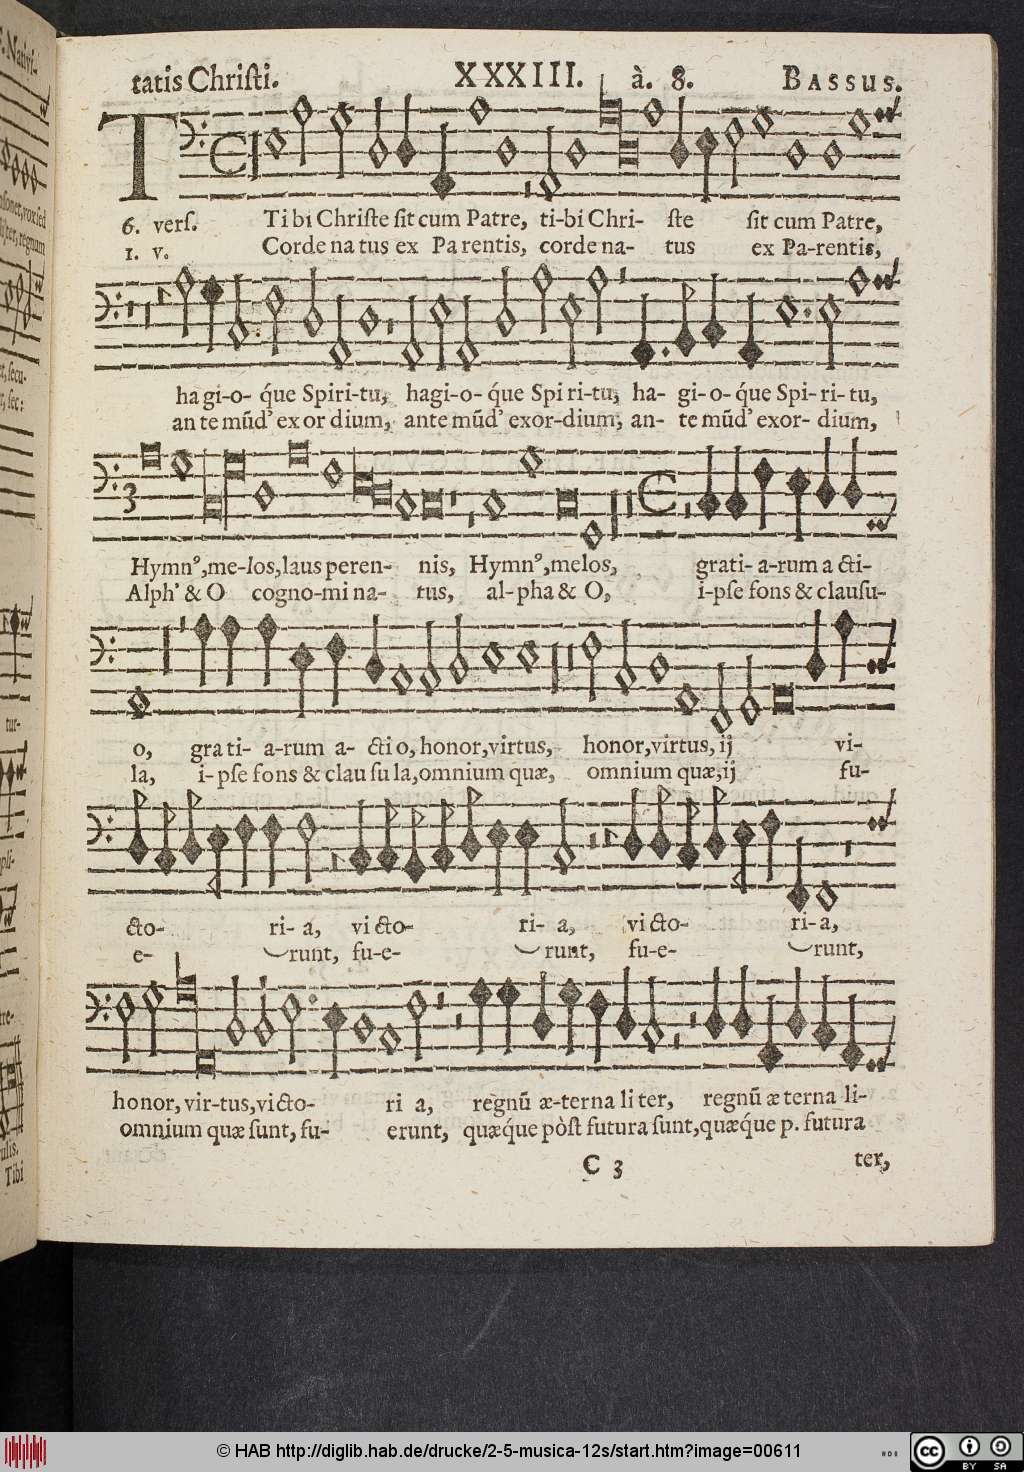 tatis Chriſti. XXXIII. à. 8. BASSUS.
T
6. verſ. Ti bi Chriſte ſit cum Patre, ti-bi Chri- ſte ſit cum Patre,
1. v. Corde na tus ex Pa rentis, corde na- tus ex Pa-rentis,
ha gi-o- q́ue Spiri-tu, hagi-o- q́ue Spi ri-tu, ha- gi- o- q́ue Spi- ri- tu,
an te mũd' ex or dium, ante mũd' exor-dium, an- te mũd' exor- dium,
3
Hymnꝰ,me-los,laus peren- nis, Hymnꝰ,melos, grati- a-rum a cti-
Alph' & O cogno-mi na- tus, al-pha & O, i-pſe fons & clauſu-
o, gra ti- a-rum a- cti o, honor,virtus, honor,virtus, ij vi-
la, i- pſe fons & clau ſu la,omnium quæ, omnium quæ,ij fu-
cto- ri- a, vi cto- ri- a, vi cto- ri- a,
e- runt, fu-e- runt, fu-e- runt,
honor, vir-tus,vi cto- ri a, regnũ æ-terna li ter, regnũ æ terna li-
omnium quæ ſunt, fu- erunt, quæq́ue pòſt futura ſunt,quæq́ue p. futura
C 3 ter,
Tibi
© HAB http://diglib.hab.de/drucke/2-5-musica-12s/start.htm?image=00611
cc BY SA